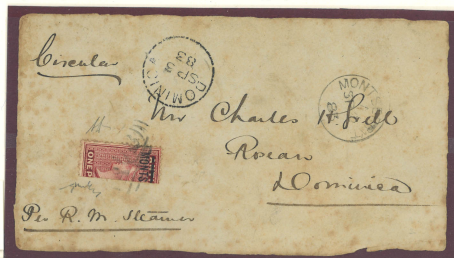 Circular
DOMINICA
SP 3
83
MONT
Mr Charles H Gell
Roseau
Dominica
ONE P
MONTS
Per R. M. Steamer